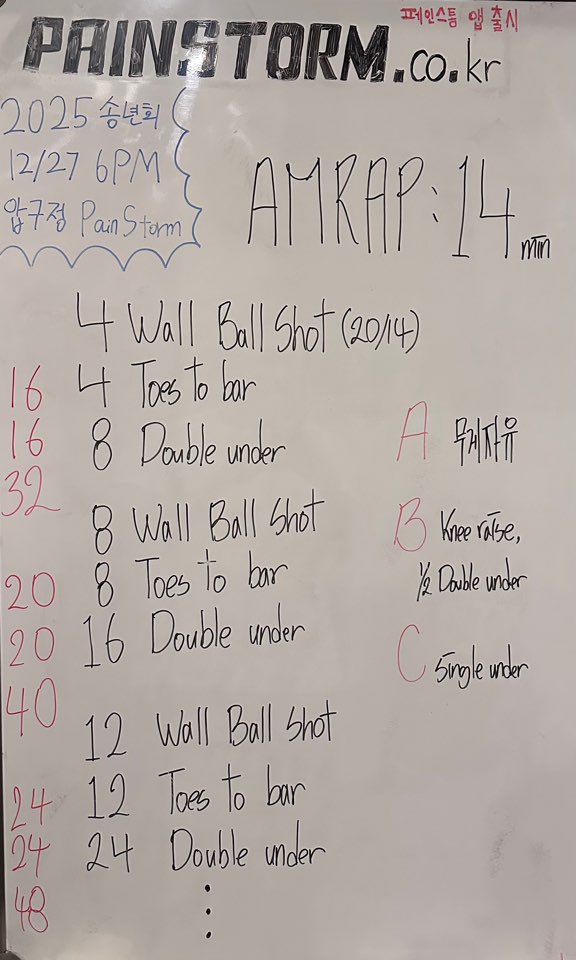 페인스톰 앱 출시
PAINSTORM.co.kr
2025 송년회
12/27 6PM
압구정 PainStorm
AMRAP: 14 min
4 Wall Ball Shot (20/14)
4 Toes to bar
8 Double under
8 Wall Ball Shot
8 Toes to bar
16 Double under
12 Wall Ball Shot
12 Toes to bar
24 Double under
⋮
16
16
32
20
20
40
24
24
48
A 무게자유
B Knee raise,
1/2 Double under
C Single under